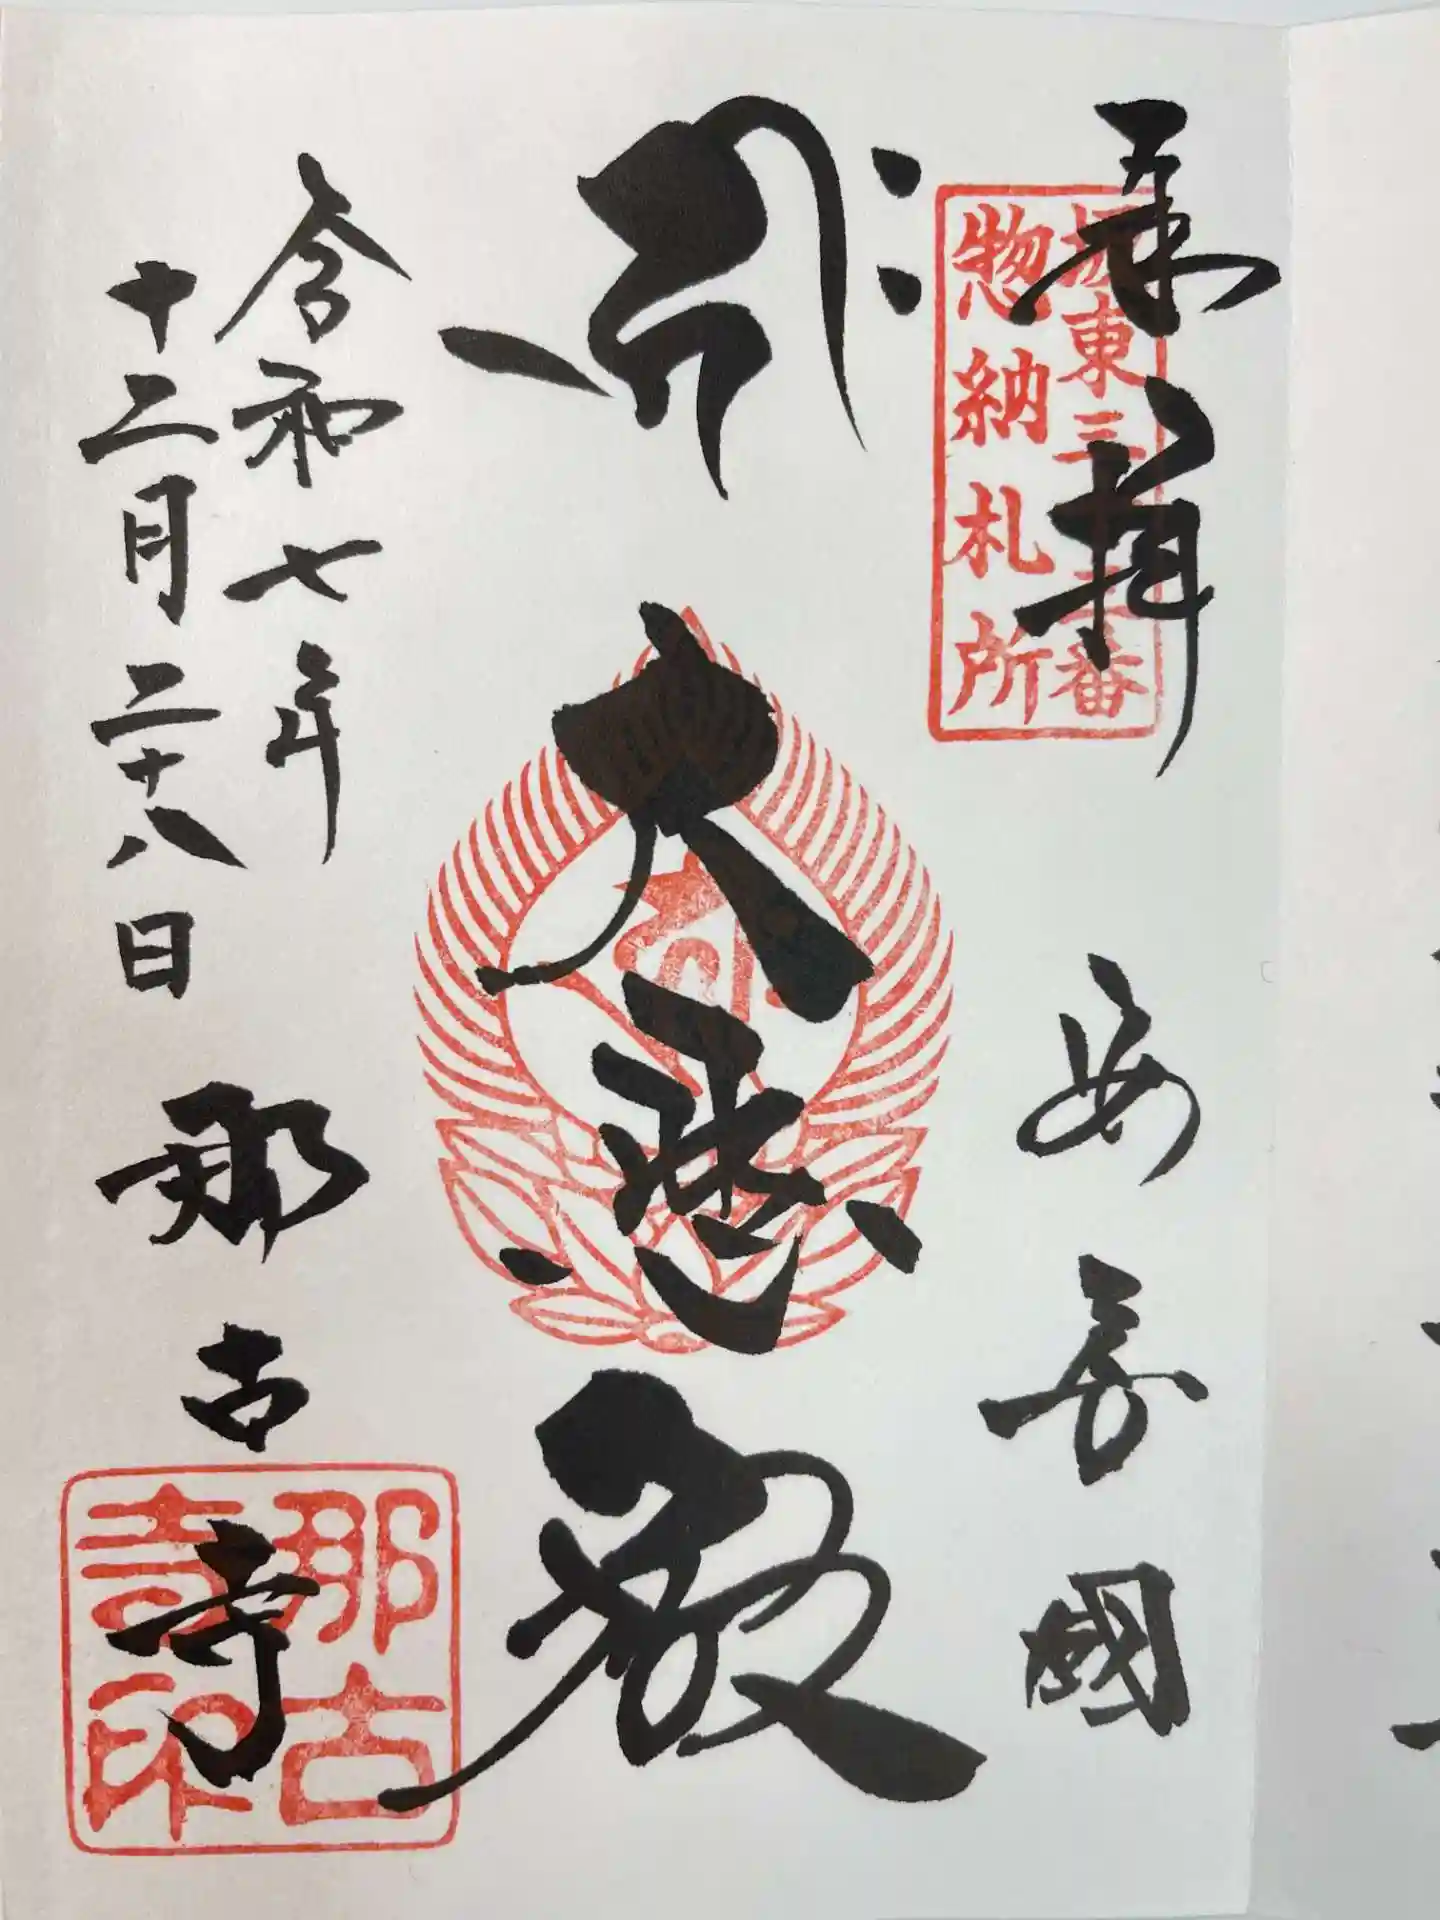 奉拝　安房國
坂東三十三番
惣納札所
大悲殿
令和七年
十二月二十八日　那古寺
那古
寺印